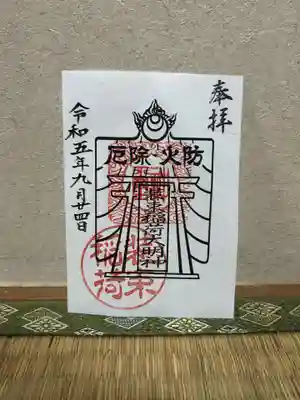 奉拝
防火・除厄
稲荷大明神
稲荷
令和五年九月廿四日